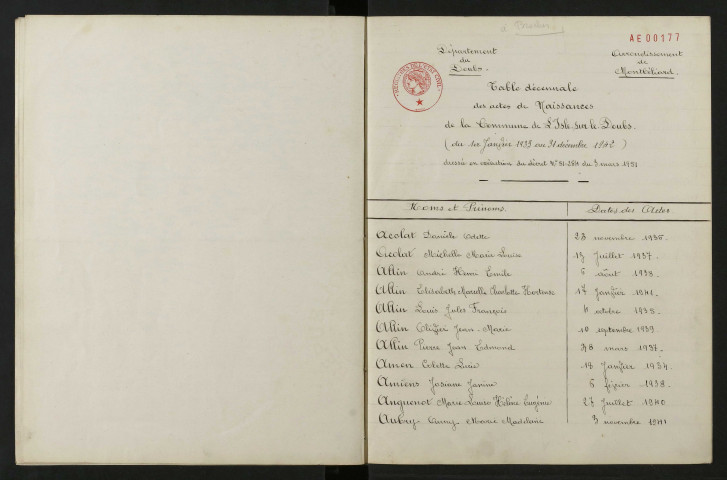 à Brocher
AE00177
Département
du
Doubs.
Arrondissement
de
Montbéliard.
Table décennale
des actes de Naissances
de la Commune de L'Isle-sur-le-Doubs.
(du 1er Janvier 1933 au 31 décembre 1942)
dressée en exécution du décret N° 51-284 du 3 mars 1951
Noms et Prénoms. Dates des Actes
Acolat Danièle Odette 23 novembre 1936.
Acolat Michelle Marie Louise 15 Juillet 1937.
Allin André Henri Emile 6 août 1938.
Allin Elisabeth Marcelle Charlotte Hortense 17 Janvier 1941.
Allin Louis Jules François 4 octobre 1935.
Allin Olivier Jean-Marie 10 septembre 1939.
Allin Pierre Jean Edmond 28 mars 1937.
Amon Colette Lucie 18 Janvier 1934.
Amiens Josiane Janine 6 février 1938.
Anguenot Marie Louise Hélène Eugénie 27 Juillet 1940.
Aubry Anny-Marie Madeleine 3 novembre 1941